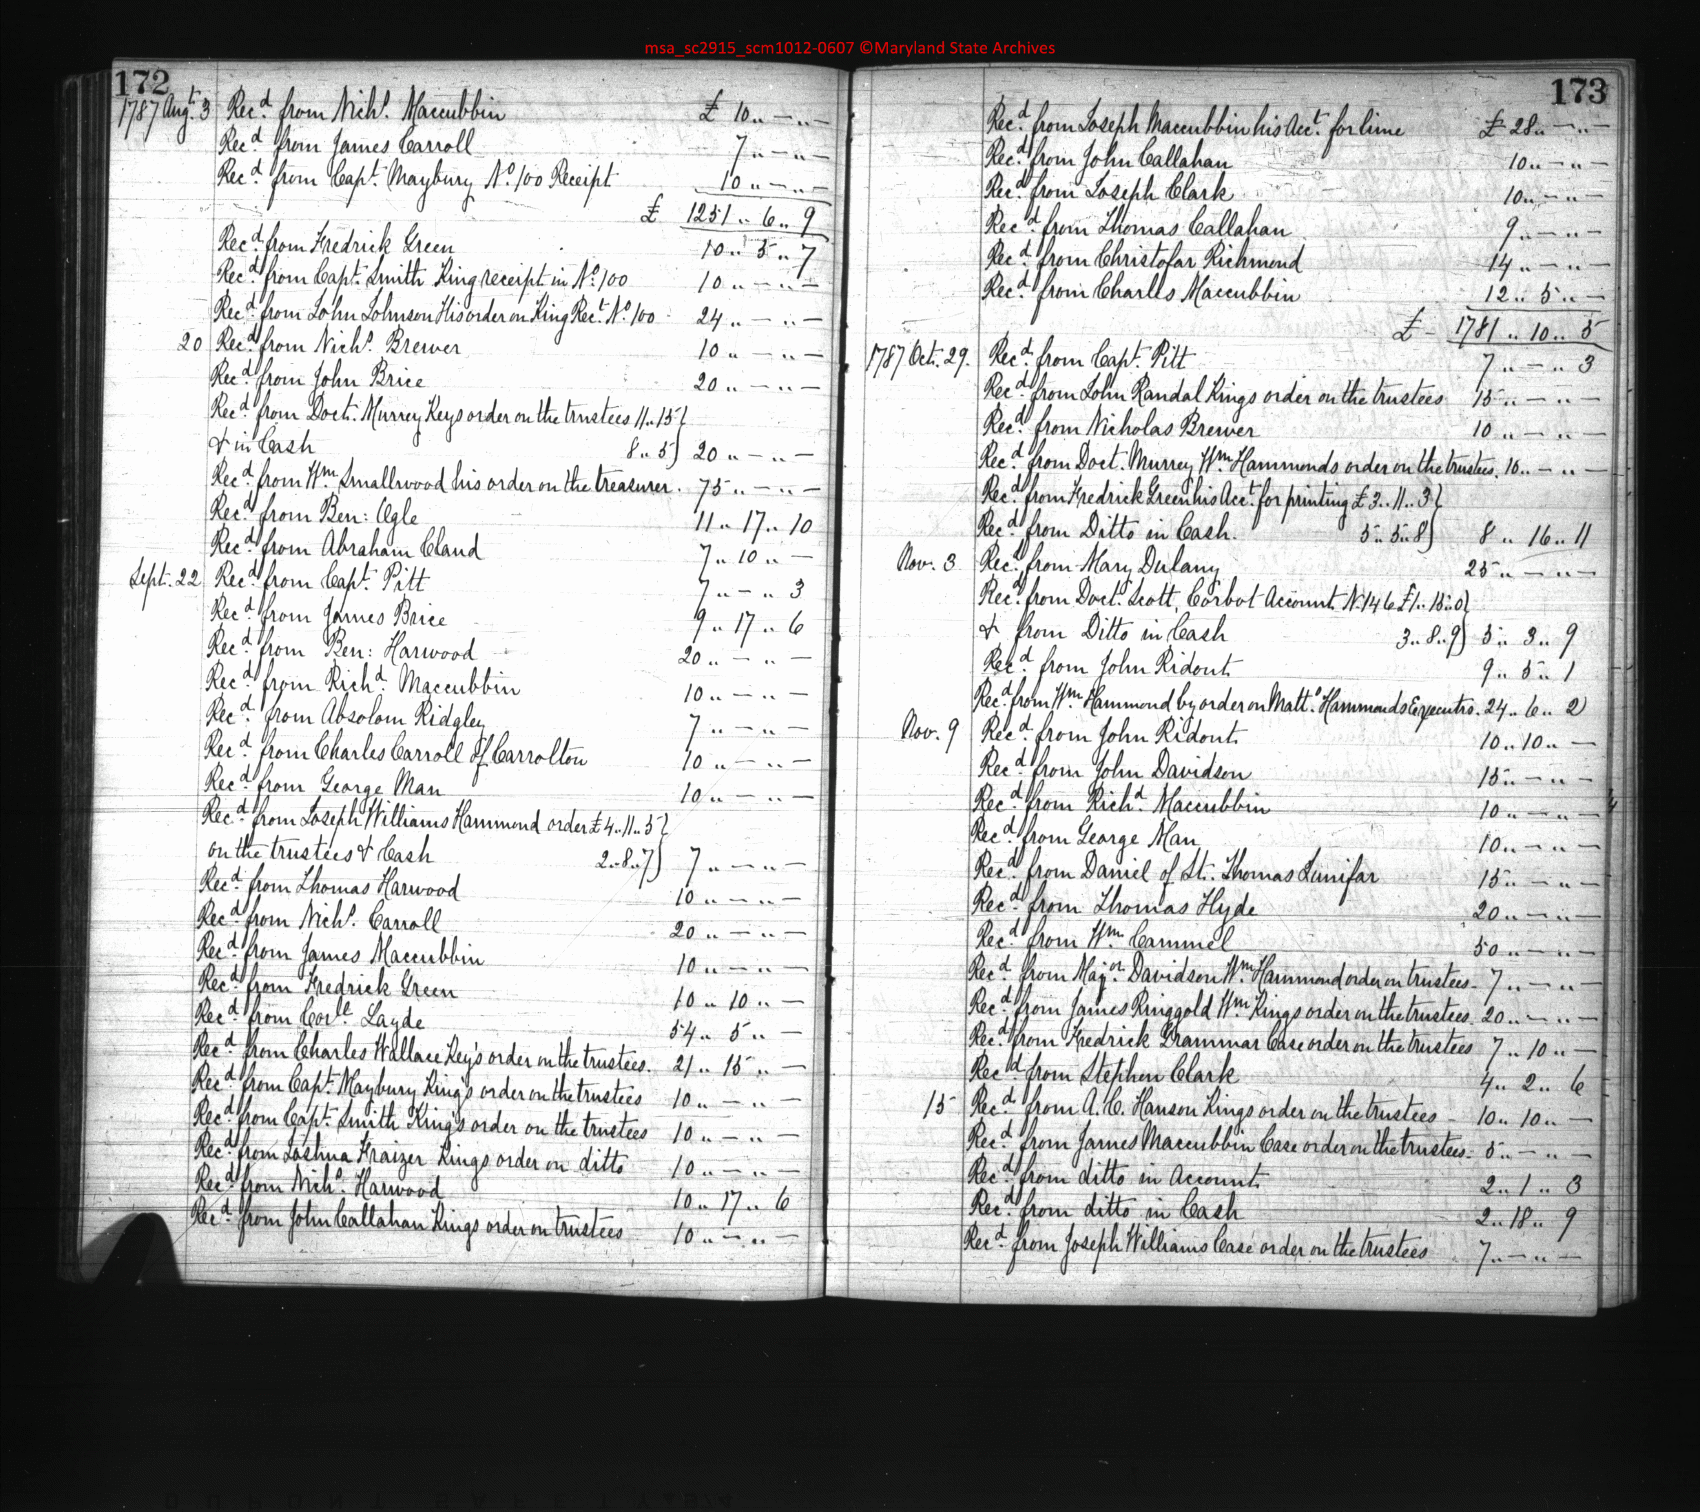 msa_sc2915_scm1012-0607 ©Maryland State Archives
172
1787 Augt. 3 Recd from Nichs. Maccubbin £ 10 ,, — ,, —
Recd from James Carroll 7 ,, — ,, —
Recd from Capt. Maybury No. 100 Receipt 10 ,, — ,, —
£ 1251 ,, 6 ,, 9
Recd from Fredrick Green 10 ,, 5 ,, 7
Recd from Capt. Smith King receipt in No. 100 10 ,, — ,, —
Recd from John Johnson His order on King Rect. No. 100 24 ,, — ,, —
20 Recd from Nichs. Brewer 10 ,, — ,, —
Recd from John Brice 20 ,, — ,, —
Recd from Doct. Murrey Keys order on the trustees 11 ,, 15 }
& in Cash 8 ,, 5 } 20 ,, — ,, —
Recd from Wm Smallwood his order on the treasurer. 75 ,, — ,, —
Recd from Ben: Ogle 11 ,, 17 ,, 10
Recd from Abraham Claud 7 ,, 10 ,, —
Sept. 22 Recd from Capt. Pitt 7 ,, — ,, 3
Recd from James Brice 9 ,, 17 ,, 6
Recd from Ben: Harwood 20 ,, — ,, —
Recd from Richd. Maccubbin 10 ,, — ,, —
Recd from Absolom Ridgley 7 ,, — ,, —
Recd from Charles Carroll of Carrolton 10 ,, — ,, —
Recd from George Man 10 ,, — ,, —
Recd from Joseph Williams Hammond order £4 ,, 11 ,, 5 }
on the trustees & Cash 2 ,, 8 ,, 7 } 7 ,, — ,, —
Recd from Thomas Harwood 10 ,, — ,, —
Recd from Nichs. Carroll 20 ,, — ,, —
Recd from James Maccubbin 10 ,, — ,, —
Recd from Fredrick Green 10 ,, 10 ,, —
Recd from Layde 54 ,, 5 ,, —
Recd from Charles Wallace Key's order on the trustees. 21 ,, 15 ,, —
Recd from Capt. Maybury King's order on the trustees 10 ,, — ,, —
Recd from Capt. Smith King's order on the trustees 10 ,, — ,, —
Recd from Joshua Fraizer Kings order on ditto 10 ,, — ,, —
Recd from Nichs. Harwood 10 ,, 17 ,, 6
Recd from John Callahan Kings order on trustees 10 ,, — ,, —
173
Recd from Joseph Maccubbin his Acct. for lime £ 28 ,, — ,, —
Recd from John Callahan 10 ,, — ,, —
Recd from Joseph Clark 10 ,, — ,, —
Recd from Thomas Callahan 9 ,, — ,, —
Recd from Christofar Richmond 14 ,, — ,, —
Recd from Charles Maccubbin 12 ,, 5 ,, —
£ 1781 ,, 10 ,, 5
1787 Oct. 29. Recd from Capt. Pitt 7 ,, — ,, 3
Recd from John Randal Kings order on the trustees 15 ,, — ,, —
Recd from Nicholas Brewer 10 ,, — ,, —
Recd from Doct. Murrey Wm Hammonds order on the trustees. 10 ,, — ,, —
Recd from Fredrick Green his Acct. for printing £3 ,, 11 ,, 3 }
Recd from Ditto in Cash. 5 ,, 5 ,, 8 } 8 ,, 16 ,, 11
Nov. 3 Recd from Mary Dulany 25 ,, — ,, —
Recd from Doct. Scott, Corbot Account No. 146 £1 ,, 15 ,, 0 }
& from Ditto in Cash 3 ,, 8 ,, 9 } 5 ,, 3 ,, 9
Recd from John Ridout 9 ,, 5 ,, 1
Recd from Wm Hammond by order on Matts. Hammonds Executrs. 24 ,, 6 ,, 2
Nov. 9 Recd from John Ridout 10 ,, 10 ,, —
Recd from John Davidson 15 ,, — ,, —
Recd from Richd. Maccubbin 10 ,, — ,, —
Recd from George Man 10 ,, — ,, —
Recd from Daniel of St. Thomas Junifar 15 ,, — ,, —
Recd from Thomas Hyde 20 ,, — ,, —
Recd from Wm Cammel 50 ,, — ,, —
Recd from Major Davidson Wm Hammond order on trustees 7 ,, — ,, —
Recd from James Ringgold Wm Kings order on the trustees 20 ,, — ,, —
Recd from Fredrick Grammar Case order on the trustees 7 ,, 10 ,, —
Recd from Stephen Clark 4 ,, 2 ,, 6
15 Recd from A. C. Hanson Kings order on the trustees 10 ,, 10 ,, —
Recd from James Maccubbin Case order on the trustees 5 ,, — ,, —
Recd from ditto in Account 2 ,, 1 ,, 3
Recd from ditto in Cash 2 ,, 18 ,, 9
Recd from Joseph Williams Case order on the trustees 7 ,, — ,, —